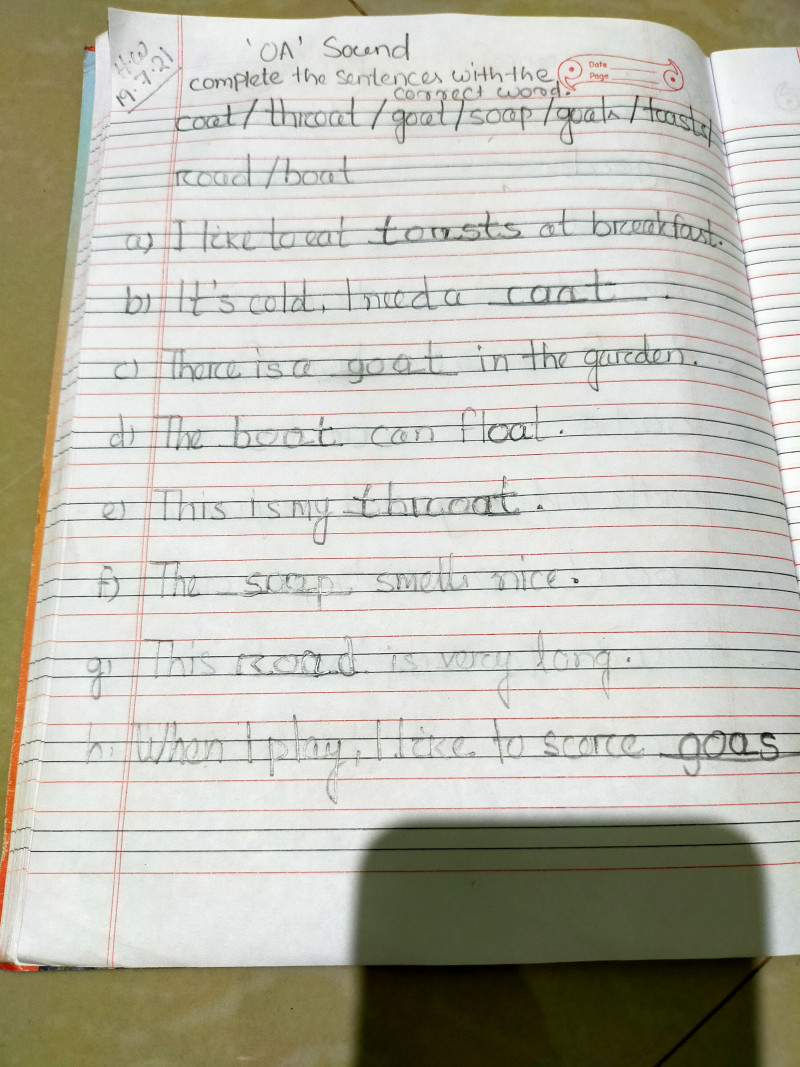 H.W
19.7.21
'OA' Sound
complete the sentences with the
correct word.
Date
Page
coat / throat / goat / soap / goals / toasts/
road / boat
a) I like to eat toasts at breakfast.
b) It's cold, I need a coat .
c) There is a goat in the garden.
d) The boat can float.
e) This is my throat.
f) The soap smells nice.
g) This road is very long.
h. When I play, I like to score goas